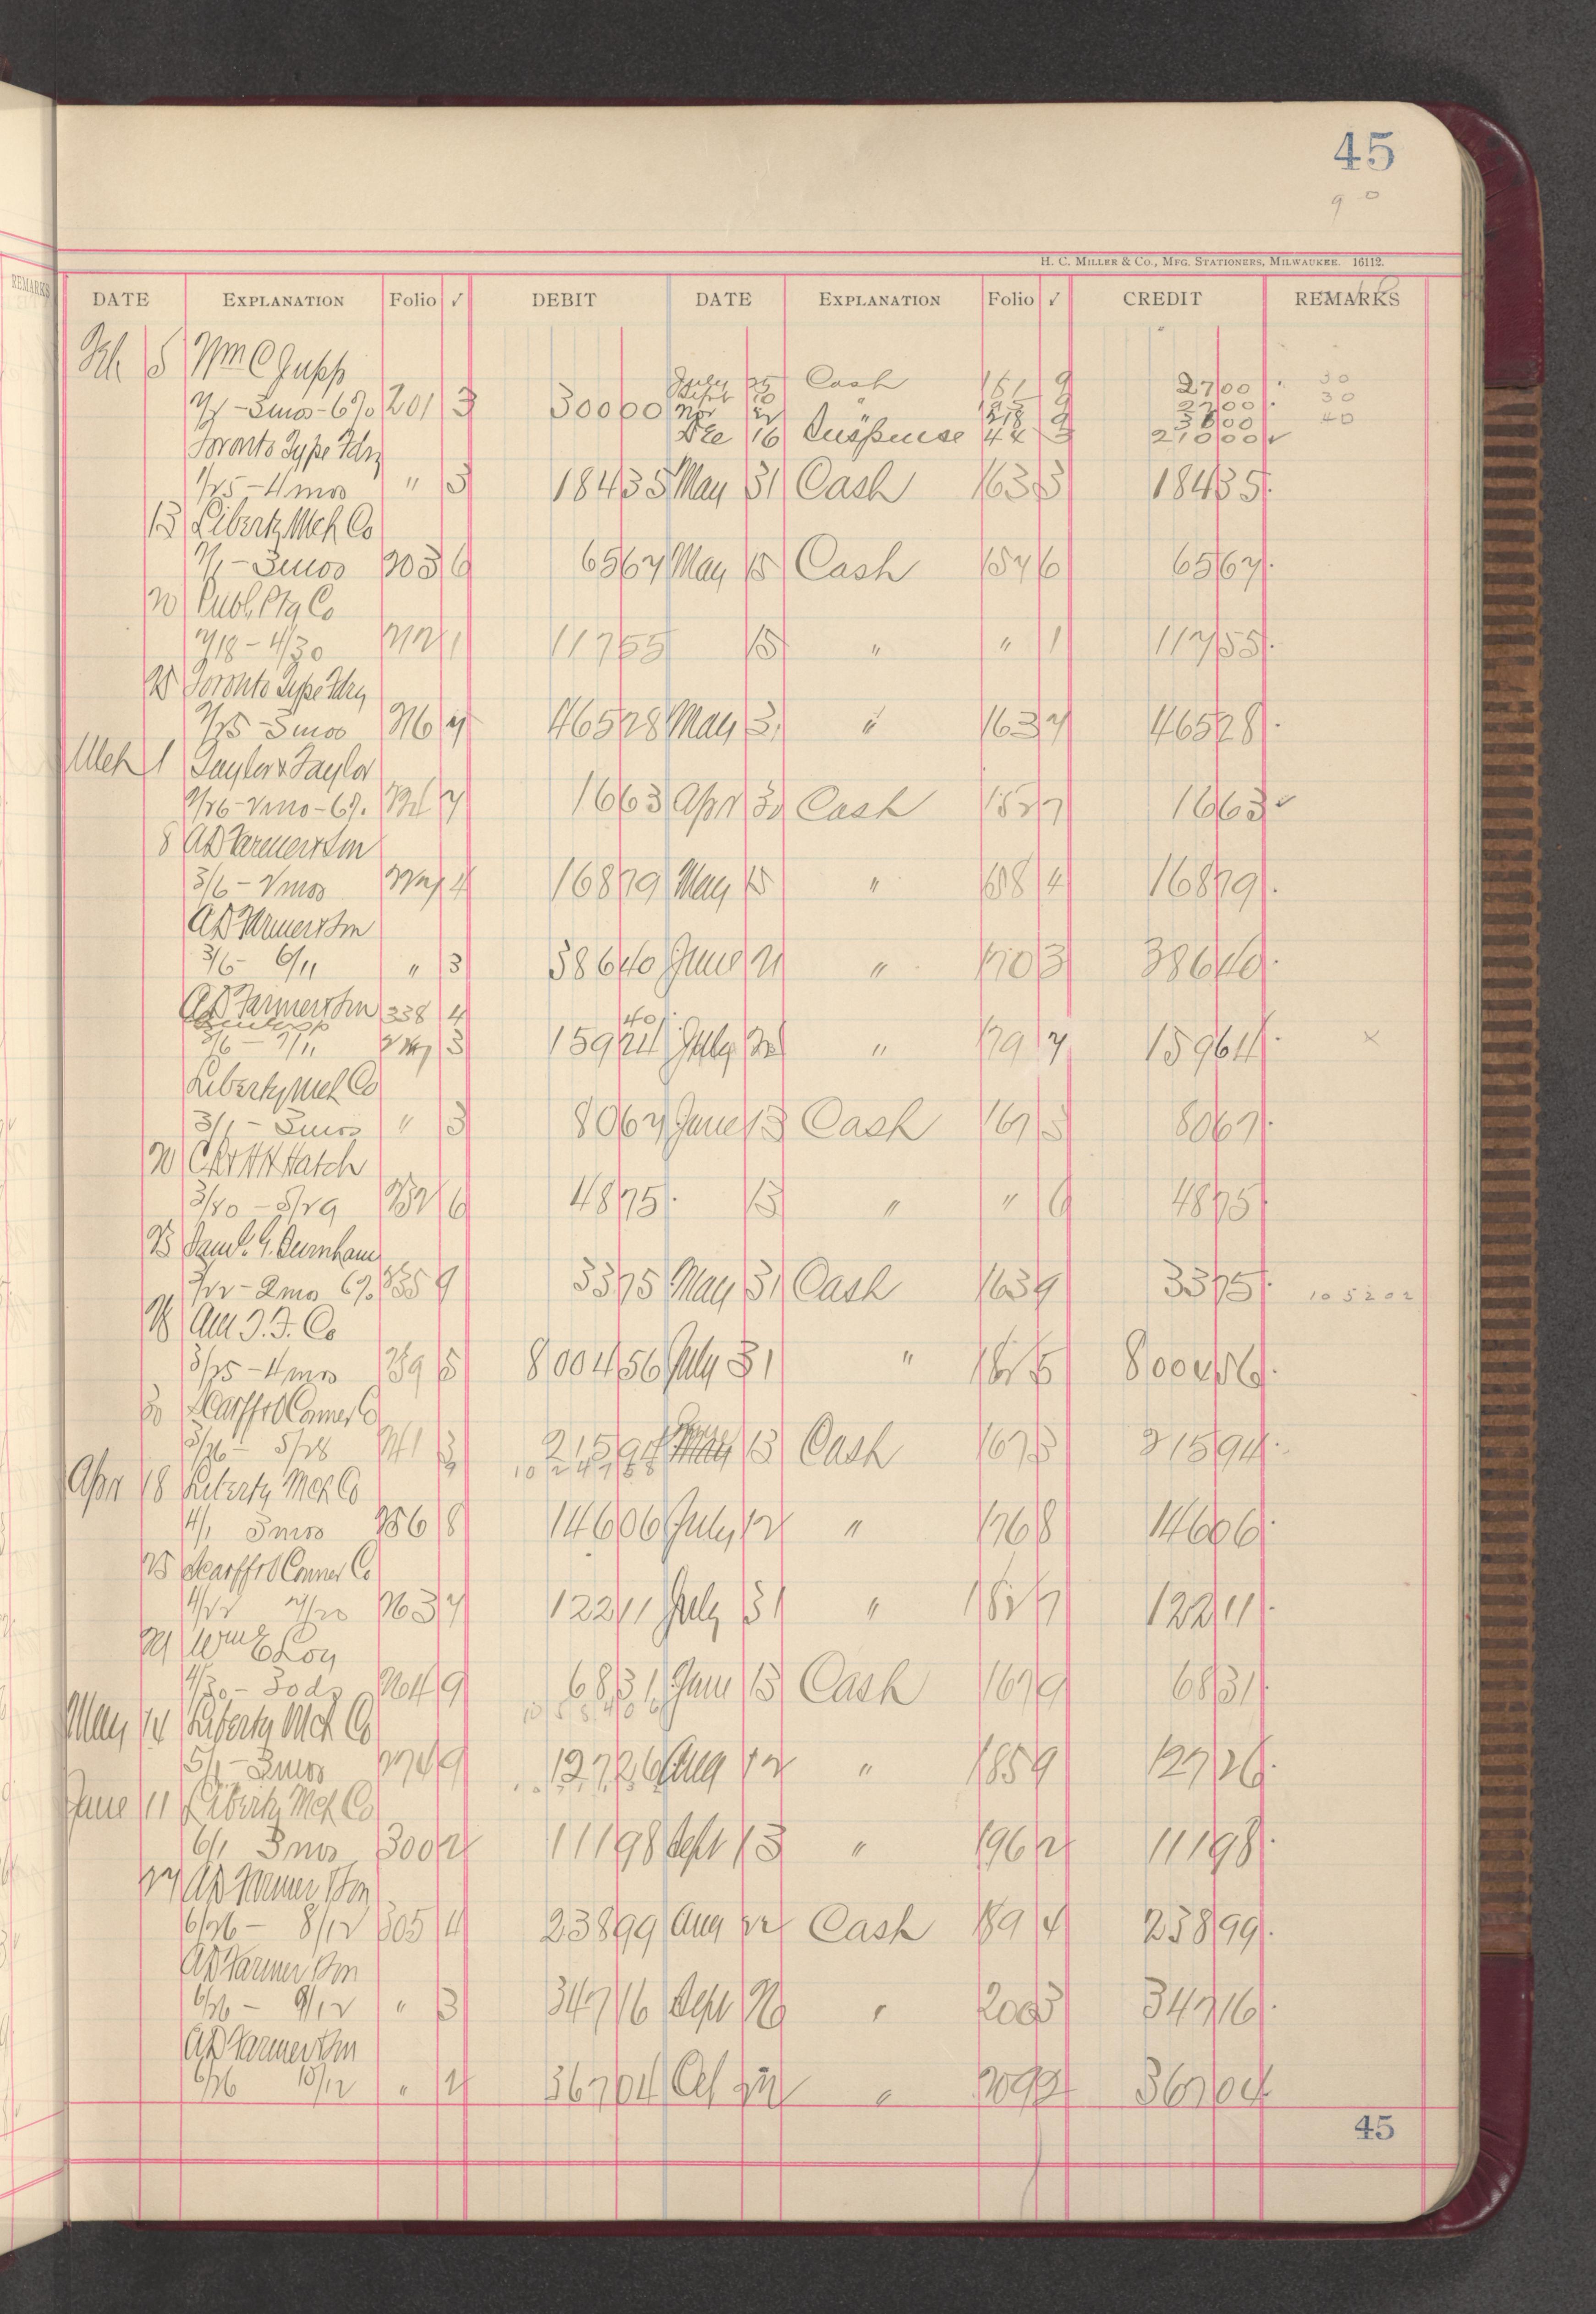 45
9 0
H. C. MILLER & CO., MFG. STATIONERS, MILWAUKEE. 16112.
REMARKS
DATE EXPLANATION Folio ✓ DEBIT DATE EXPLANATION Folio ✓ CREDIT REMARKS
5 Wm C Jupp
July 25 Cash 181 9 27 00 30
Sept 10 9 27 00 30
- 3mos - 6% 201 3 300 00 Nov 22 " 218 9 36 00 40
Toronto Type Fdry Dec 16 Suspense 44 3 210 00 ✓
1/25 - 4 mos " 3 184 35 May 31 Cash 163 3 184 35
13 Liberty Mch Co
2/1 - 3mos 203 6 65 67 May 15 Cash 157 6 65 67
20 Publ Ptg Co
2/18 - 4/30 212 1 117 55 15 " " 1 117 55
25 Toronto Type Fdry
2/25 3 mos 216 7 465 28 May 31 " 163 7 465 28
Mch 1 Taylor & Taylor
2/26 - 2mo - 6%. 7 16 63 Apr 30 Cash 152 7 16 63 ✓
8 AD Farmer & Son
3/6 - 2 mos 227 4 168 79 May 15 " 158 4 168 79
AD Farmer & Son
3/6 - 6/11 " 3 386 40 June 21 " 170 3 386 40
AD Farmer & Son 338 4 40
3/6 - 7/11 227 3 159 24 July " 179 7 159 64 ×
Liberty Mch Co
3/1 - 3mos " 3 80 67 June 13 Cash 167 3 80 67
20 Hatch
3/20 - 5/29 232 6 48 75 13 " " 6 48 75
23 Saml. G. Burnham
- 2mo 6% 235 9 33 75 May 31 Cash 163 9 33 75 105202
26 Am T. F. Co
3/25 - 4 mos 239 5 8004 56 July 31 " 182 5 8004 56
30 Scarff & O'Connor Co
3/26 - 5/28 241 3 215 94 June 13 Cash 167 3 215 94
Apr 18 Liberty Mch Co
4/1 3mos 256 8 146 06 July 12 " 176 8 146 06
25 Scarff & O'Connor Co
4/22 7/20 263 7 122 11 July 31 " 182 7 122 11
Wm E Loy
4/30 - 30 ds 264 9 68 31 June 13 Cash 167 9 68 31
May 14 Liberty Mch Co
5/1 - 3mos 274 9 127 26 Aug 12 " 185 9 127 26
June 11 Liberty Mch Co
6/1 3 mos 300 2 111 98 Sept 13 " 196 2 111 98
27 AD Farmer & Son
6/26 - 8/12 305 4 238 99 Aug 22 Cash 189 4 238 99
AD Farmer & Son
6/26 - 9/12 " 3 347 16 Sept 26 " 200 3 347 16
AD Farmer & Son
6/26 10/12 " 2 367 04 Oct 22 " 209 2 367 04
45